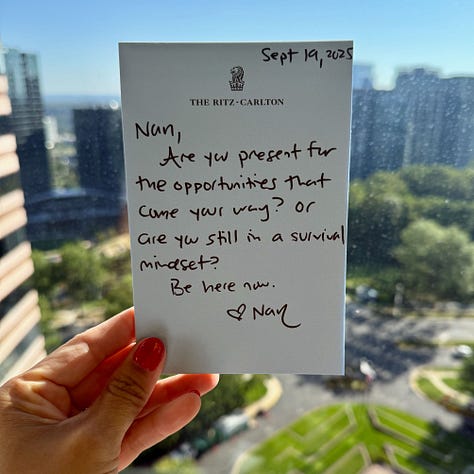 Sept 19, 2025
THE RITZ-CARLTON
Nan,
Are you present for
the opportunities that
come your way? Or
are you still in a survival
mindset?
Be here now.
♡ Nan